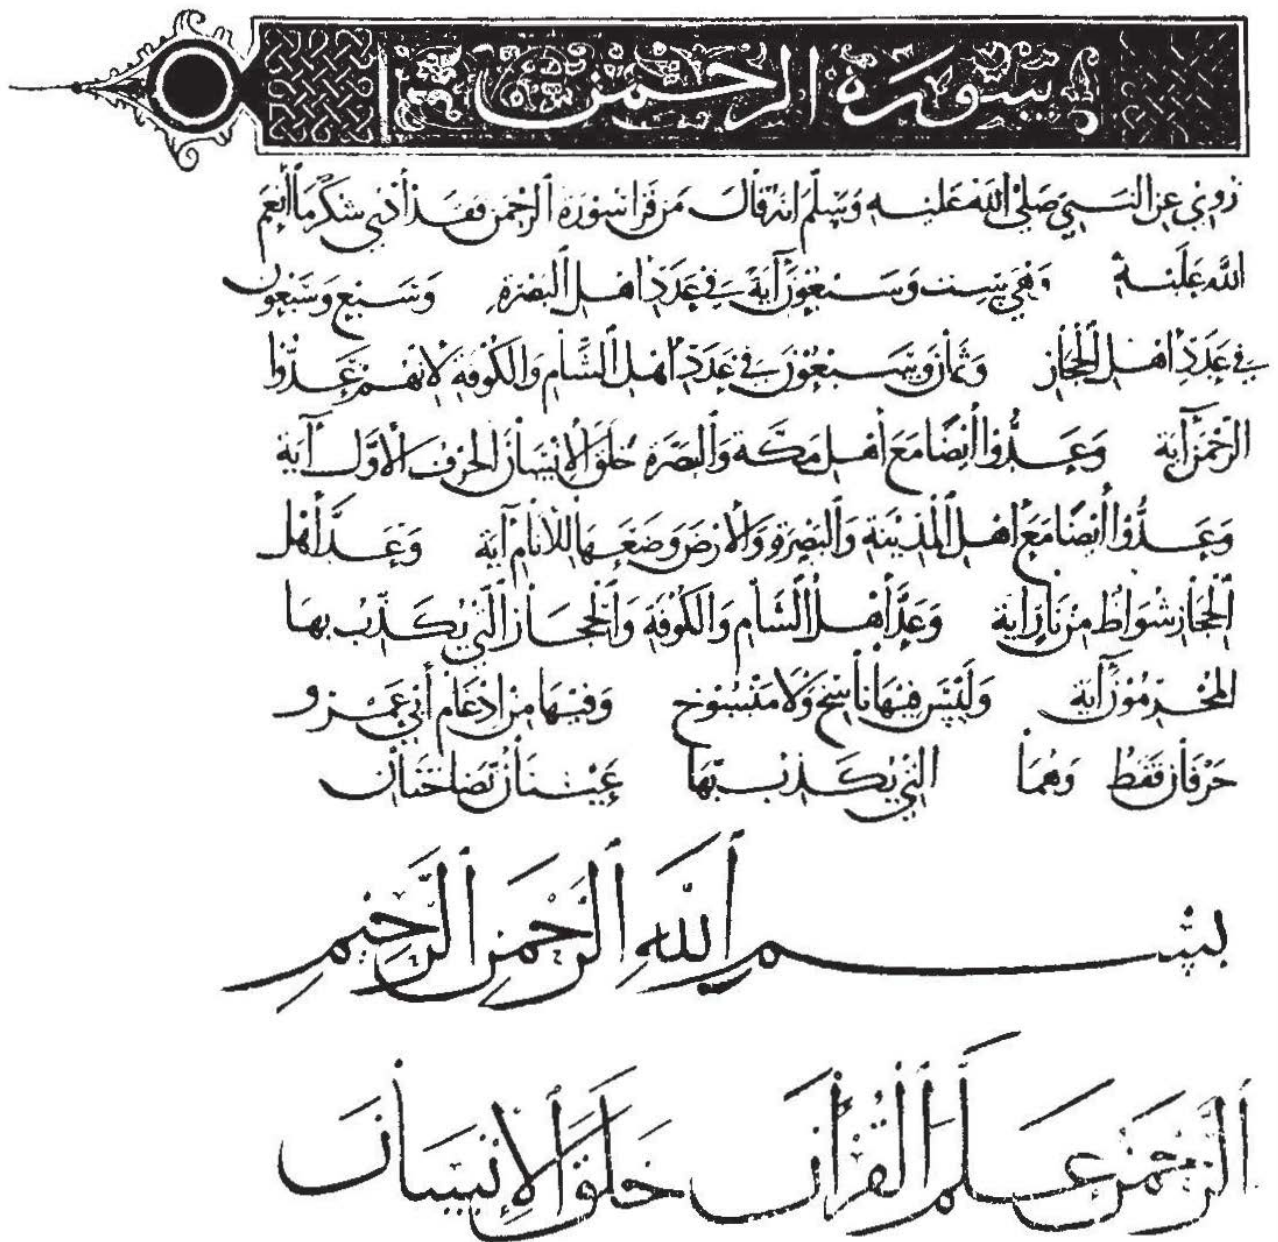 سورة الرحمن
روي عن النبي صلى الله عليه وسلم انه قال من قرا سورة الرحمن فقد أدى شكر ما أنعم
الله عليه وهي ست وسبعون آية في عدد اهل البصرة وسبع وسبعون
في عدد اهل الحجاز وثمان وسبعون في عدد أهل الشام والكوفة لانهم عدوا
الرحمن آية وعدوا ايضا مع أهل مكة والبصرة خلق الانسان الحرف الاول آية
وعدوا أيضا مع أهل المدينة والبصرة والارض وضعها للانام آية وعد أهل
الحجاز شواظ من نار آية وعد أهل الشام والكوفة والحجاز التي يكذب بها
المجرمون آية وليس فيها ناسخ ولا منسوخ وفيها من ادغام أبي عمرو
حرفان فقط وهما التي يكذب بها عينان نضاختان
بِسْمِ ٱللَّهِ ٱلرَّحْمَنِ ٱلرَّحِيمِ
ٱلرَّحْمَنُ عَلَّمَ ٱلْقُرْآنَ خَلَقَ ٱلْإِنْسَانَ